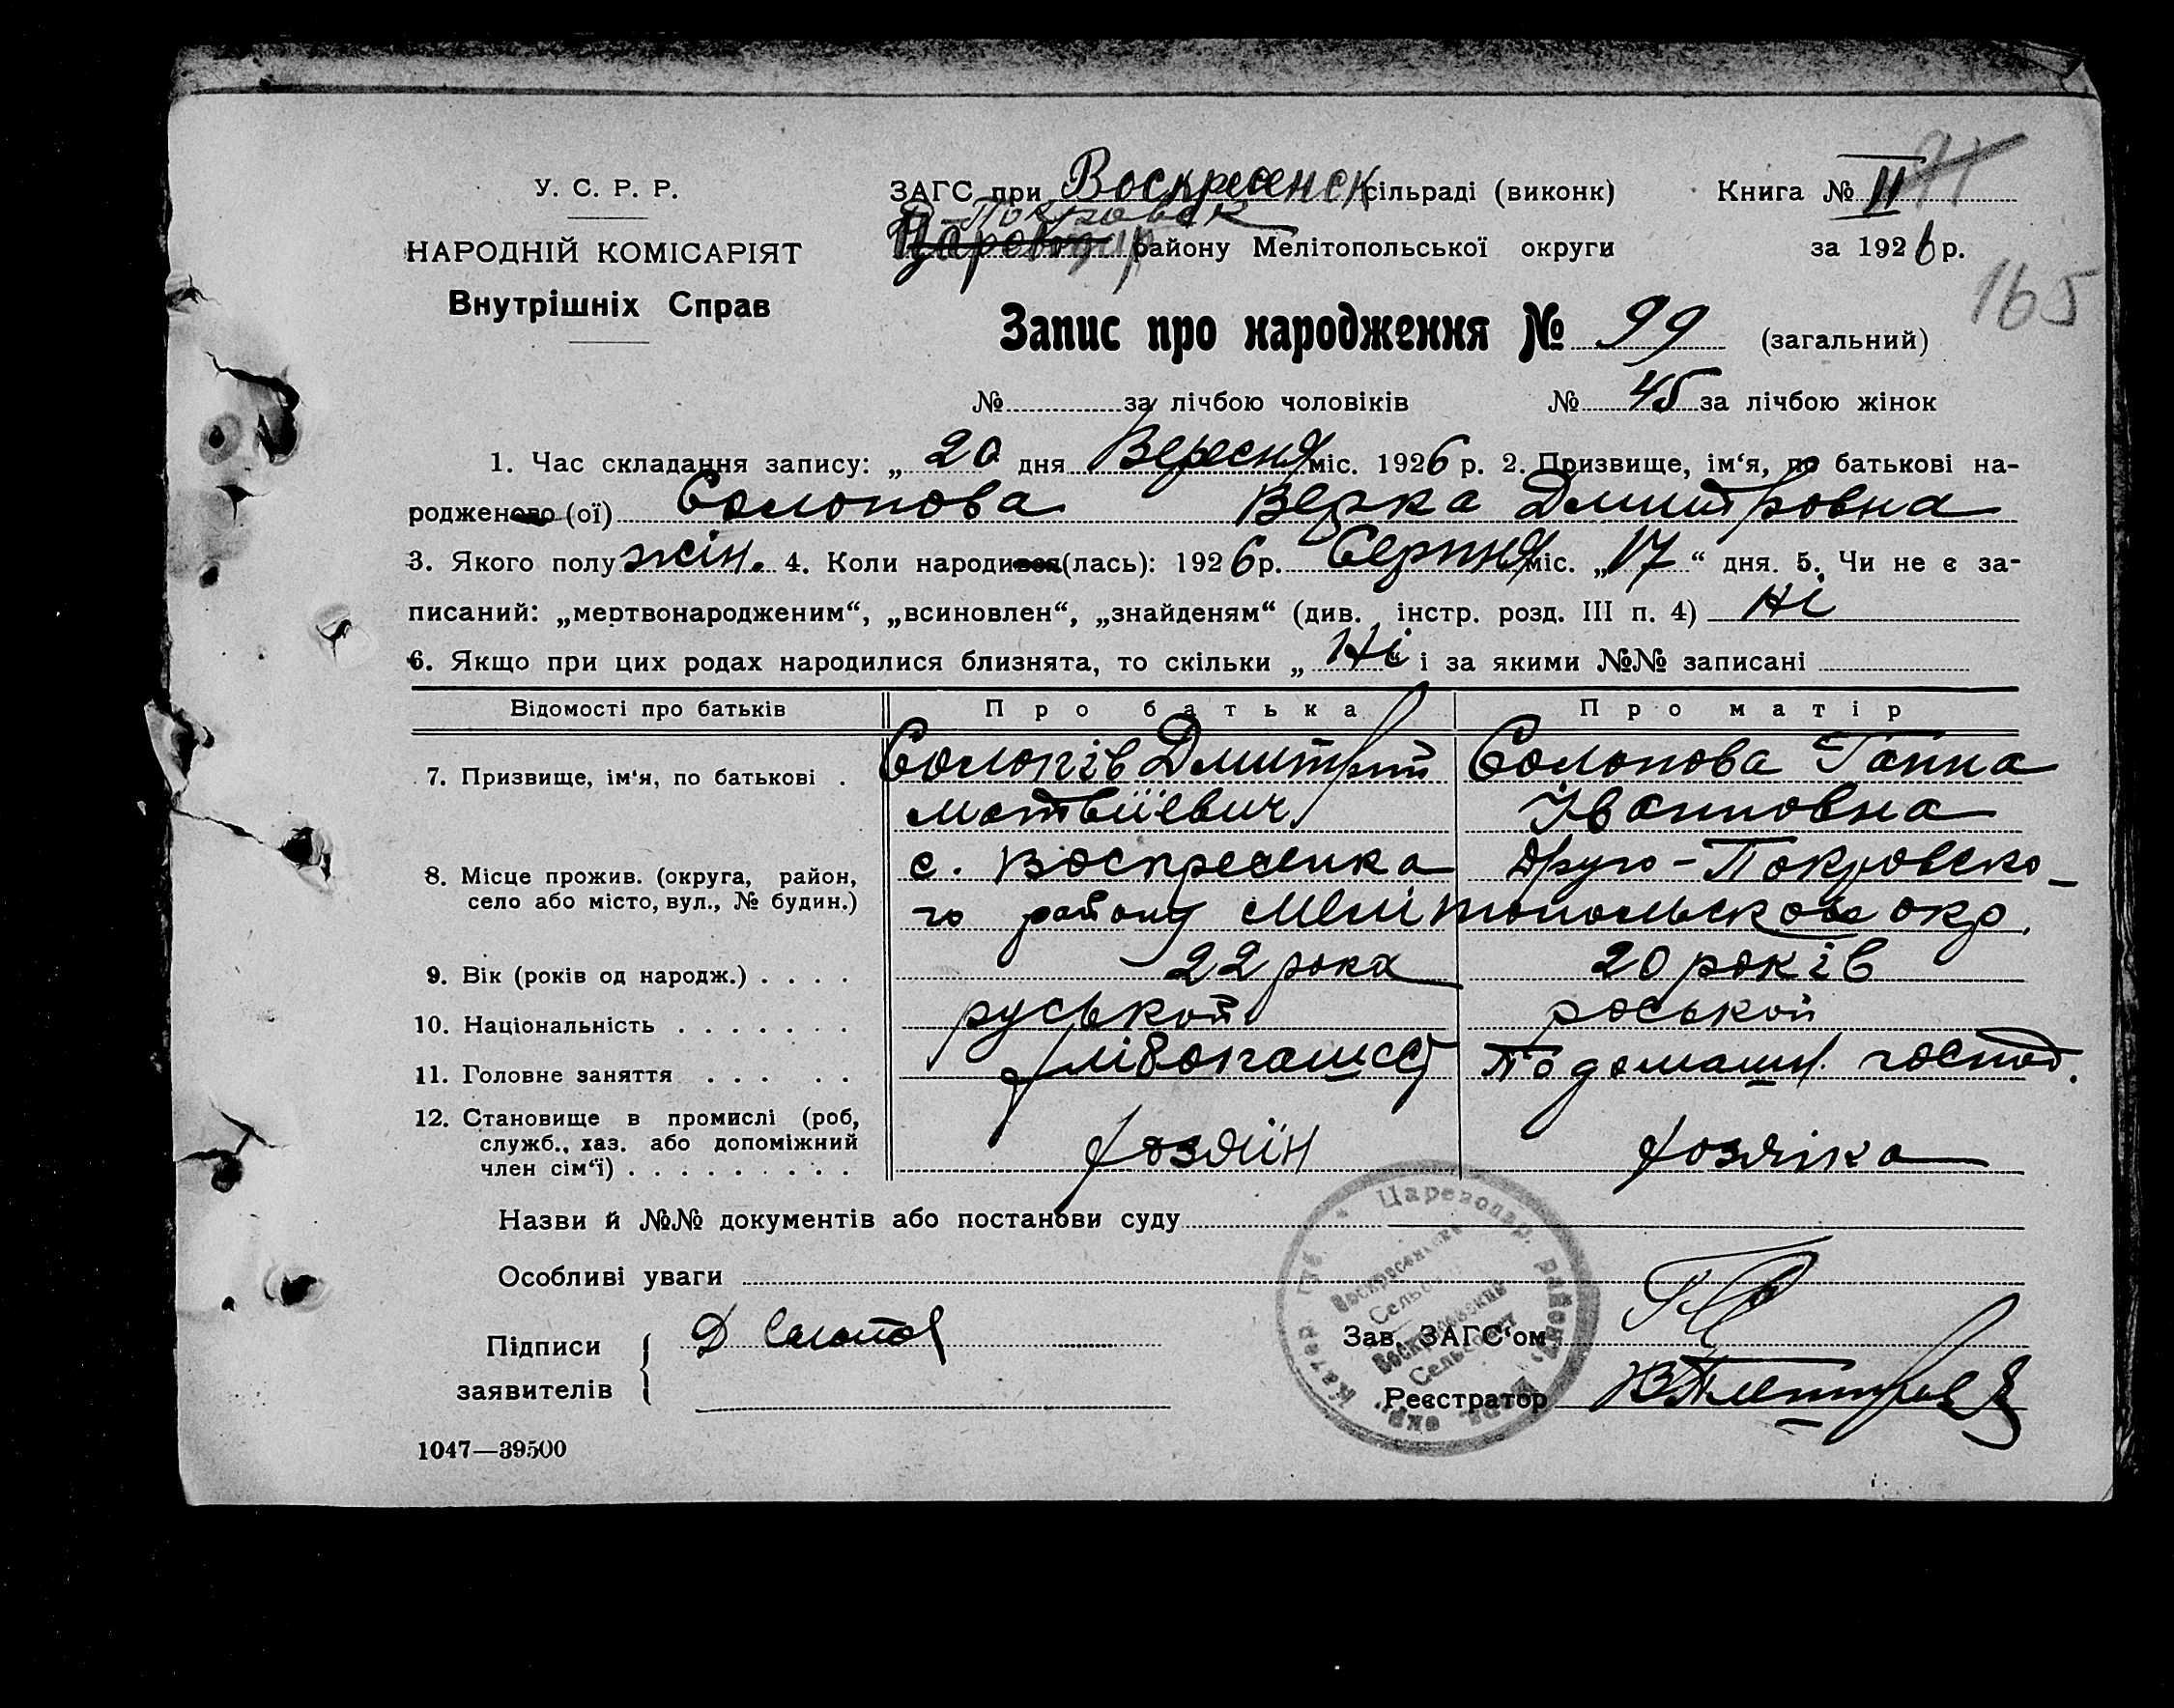 У. С. Р. Р.
НАРОДНІЙ КОМІСАРІЯТ
Внутрішніх Справ
ЗАГС при Воскресенск сільраді (виконк) Книга № II 71
В-Покровск
Царевоп района Мелітопольської округи за 1926 р.
165
Запис про народження № 99 (загальний)
№ за лічбою чоловіків № 45 за лічбою жінок
1. Час складання запису: „ 20 дня Вересня міс. 1926 р. 2. Призвище, ім‘я, по батькові на-
родженого (ої) Солопова Верка Дмитровна
3. Якого полу жін. 4. Коли народився (лась): 1926 р. Серпня міс. „17“ дня. 5. Чи не є за-
писаний: „мертвонародженим“, „всиновлен“, „знайденям“ (див. інстр. розд. III п. 4) Ні
6. Якщо при цих родах народилися близнята, то скільки „ Ні “ і за якими №№ записані
Відомості про батьків Про батька Про матір
7. Призвище, ім‘я, по батькові . Солопів Дмитрій Солопова Ганна
Матвіївич Івановна
8. Місце прожив. (округа, район, с. Воскресенка Друго-Покровско-
село або місто, вул., № будин.) го району Мелітопольської окр.
9. Вік (років од народж.) . . . . 22 рока 20 років
10. Національність . . . . . . . руськой роської
11. Головне заняття . . . . . хлібопашес По домашн. господ.
12. Становище в промислі (роб,
служб., хаз. або допоміжний
член сім‘ї) . . . . . . . . . хозяїн хозяіка
Назви й №№ документів або постанови суду
Особливі уваги
Підписи Д Солопов
заявителів
Зав. ЗАГС‘ом
Реєстратор
Царевопар. району
Воскресенский
Сельсовет
1047—39500